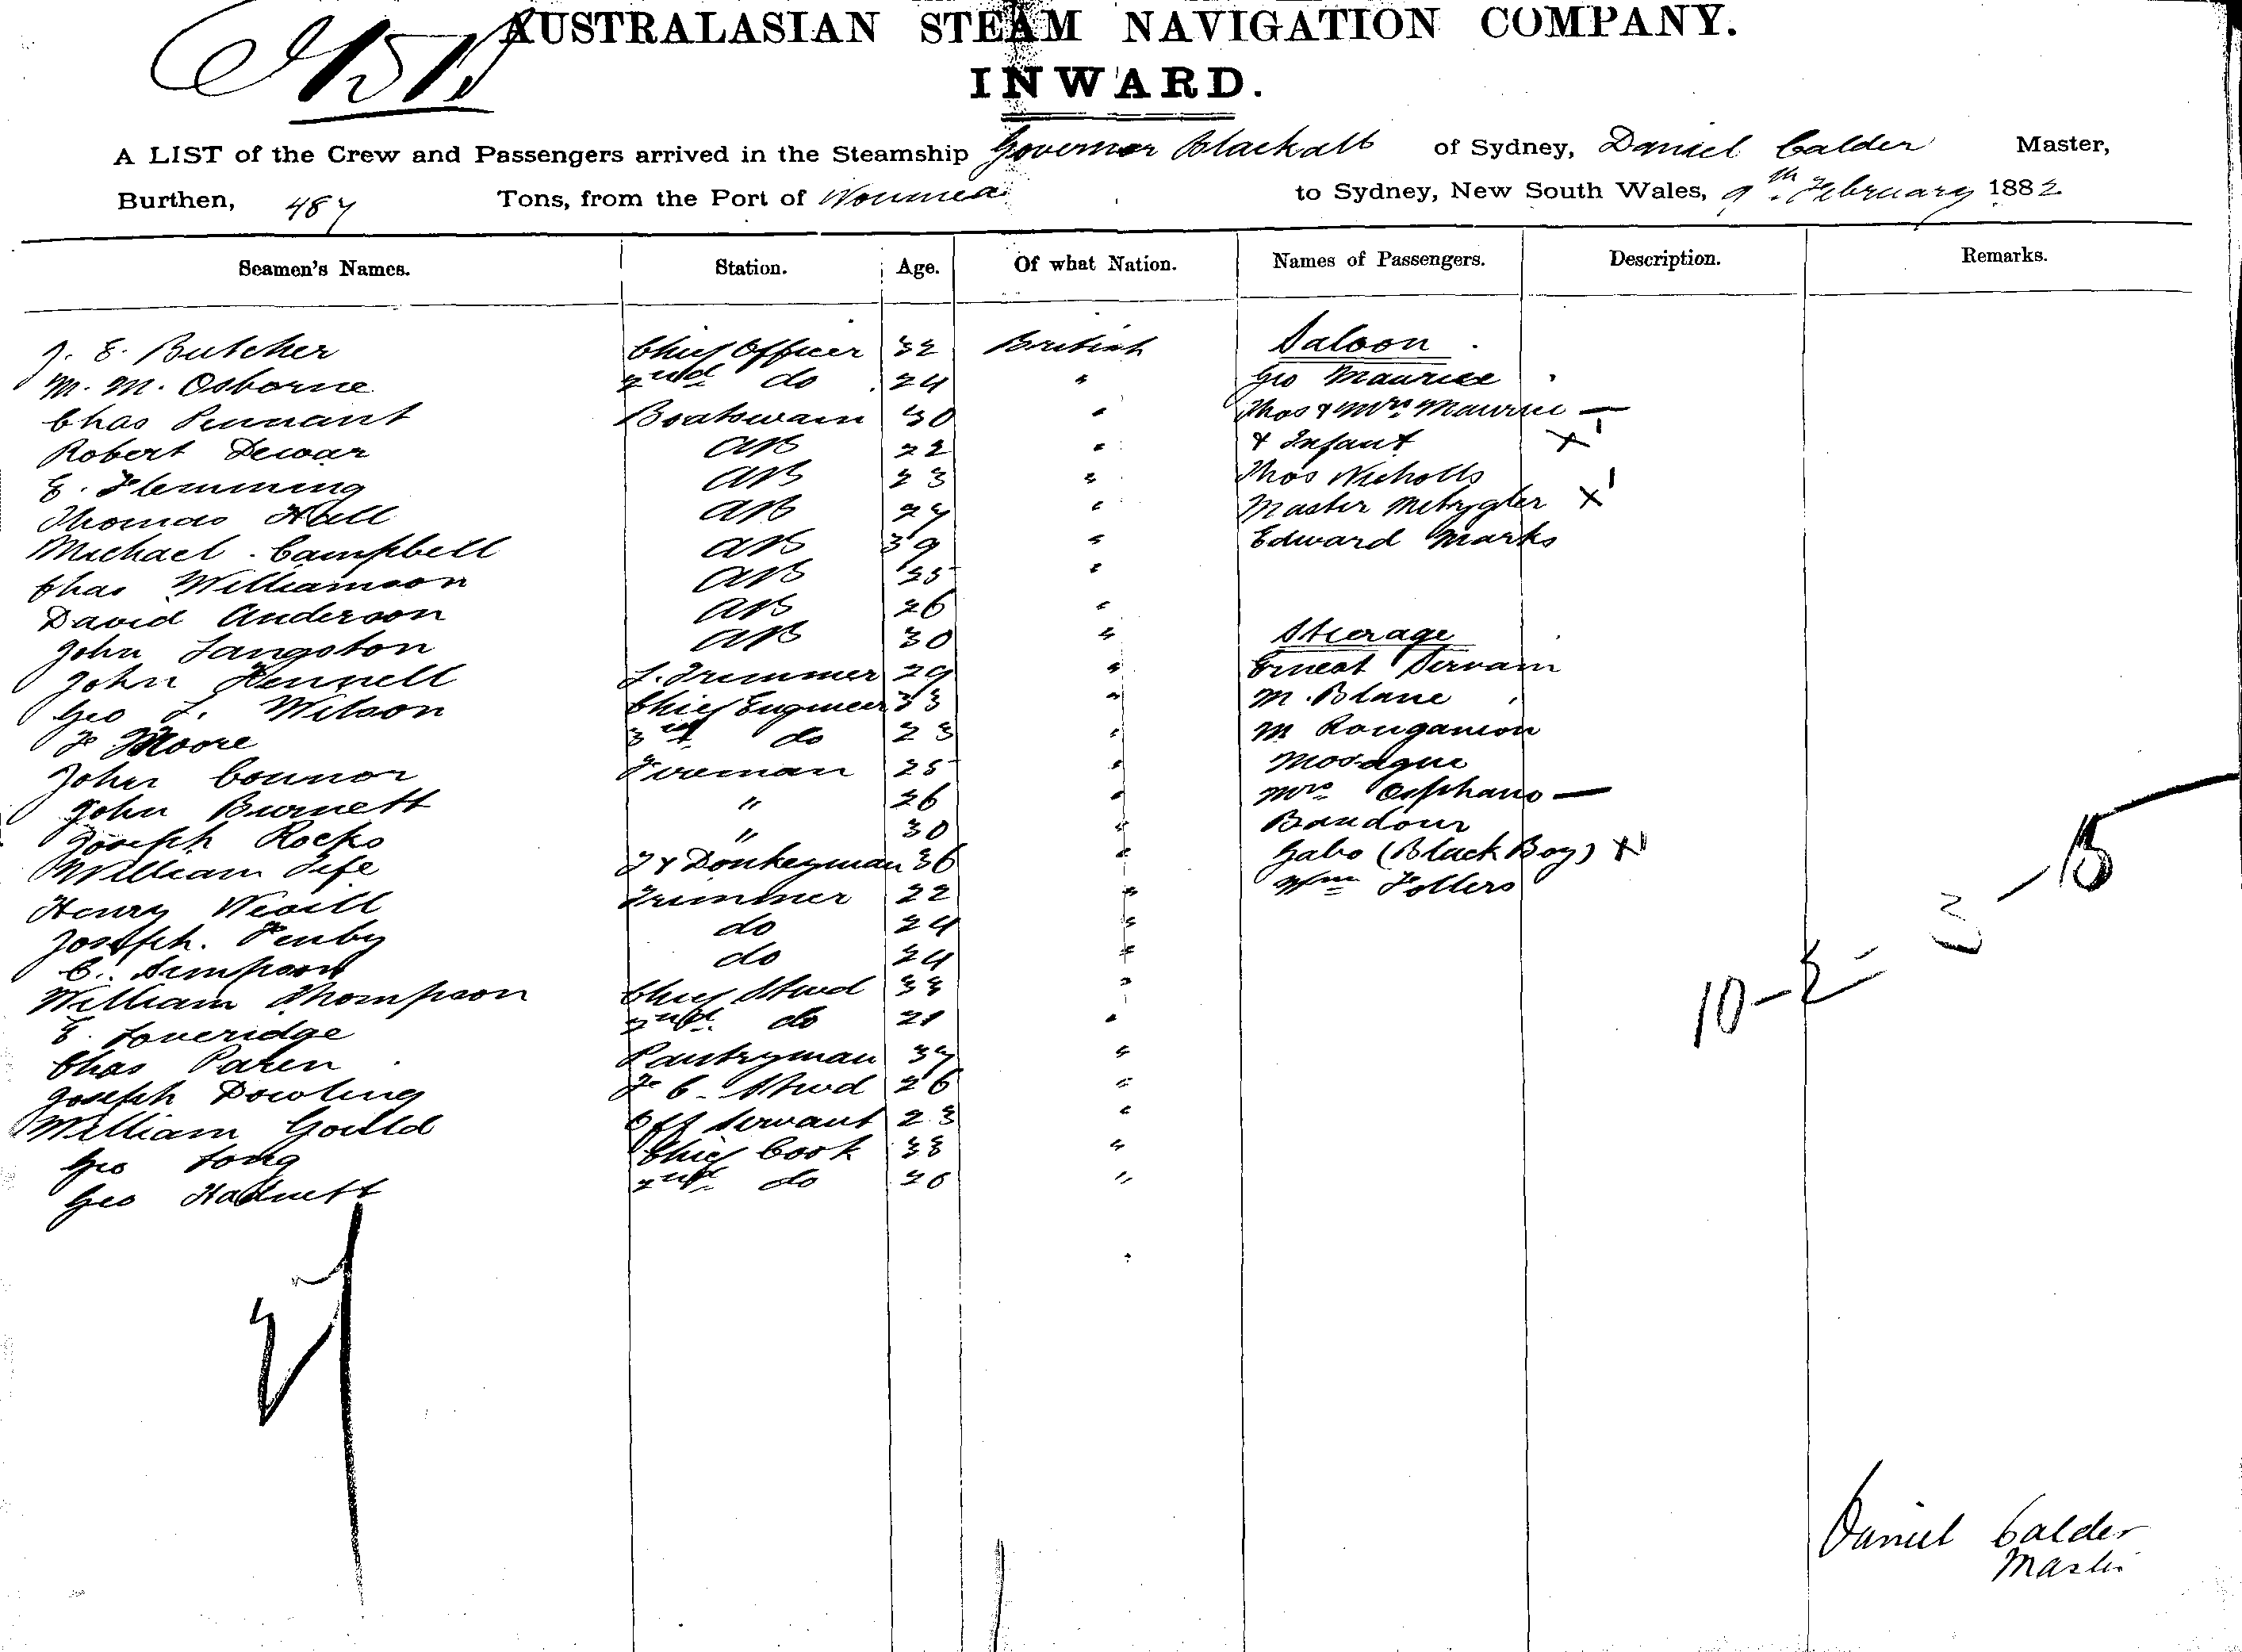 AUSTRALASIAN STEAM NAVIGATION COMPANY.
INWARD.
A LIST of the Crew and Passengers arrived in the Steamship Governor Blackall of Sydney, Daniel Calder Master,
Burthen, 487 Tons, from the Port of Noumea to Sydney, New South Wales, 9th February 1882
Seamen's Names. Station. Age. Of what Nation. Names of Passengers. Description. Remarks.
J. E. Butcher Chief Officer 32 British Saloon
M. M. Osborne 2nd do 24 " Geo Maurice
Chas Pennant Boatswain 30 " Thos & Mrs Maurice —
Robert Dewar AB 22 " & Infant X 1
E. Flemming AB 23 " Thos Nicholls
Thomas Hall AB 27 " Master X 1
Michael Campbell AB 39 " Edward Marks
Chas Williamson AB 35 "
David Anderson AB 26 "
John Langston AB 30 " Steerage
John Hennell L. Trimmer 29 " Ernest Servain
Geo L. Wilson Chief Engineer 33 " M. Blane
F Moore 3rd do 23 " M
John Connor Fireman 25 "
John Burnett " 26 " Mrs Orphano —
Joseph Rocks " 30 " Baudour
William Fife F & Donkeyman 36 " Gabo (Black Boy) X 1
Henry Trimmer 22 " Wm Follers
Joseph. Fenby do 24 "
C. Simpson do 24 "
William Thompson Chief Stwd 33 "
E. Loveridge 2nd do 21 "
Chas Paren Pantryman 37 "
Joseph Dowling F C Stwd 26 "
William Gould Off Servant 23 "
Geo Long Chief Cook 33 "
Geo Hadnett 2nd do 26 "
3 — 15
10 — 2
27
Daniel Calder
Master